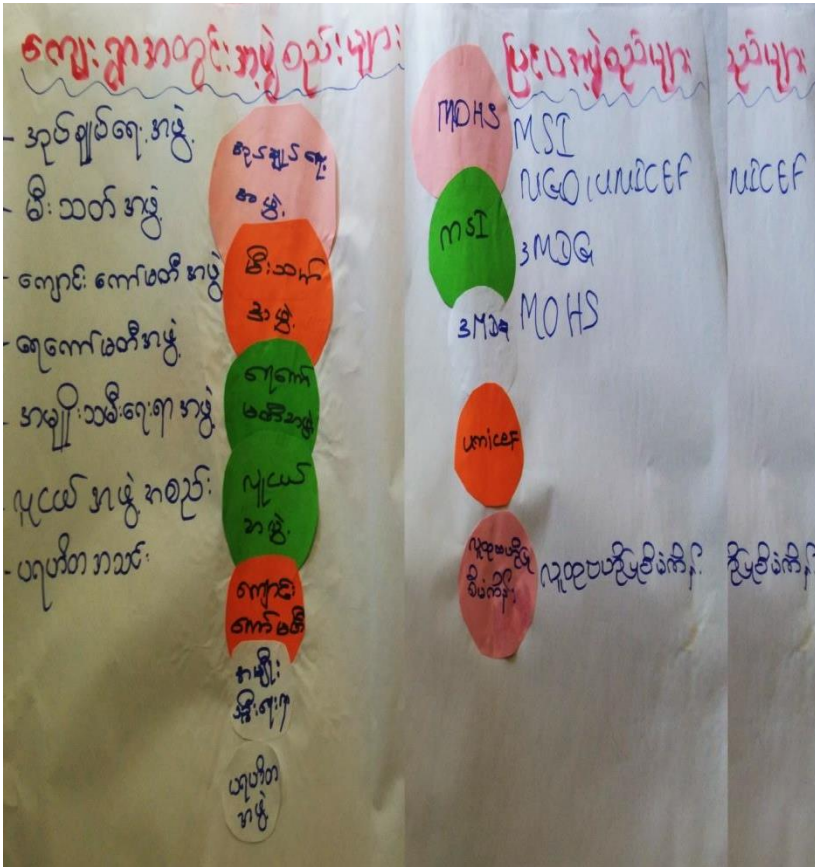 ကျေးရွာအတွင်းအဖွဲ့စည်းများ
- အုပ်ချုပ်ရေးအဖွဲ့
- မီးသတ်အဖွဲ့
- ကျောင်းကော်မတီအဖွဲ့
- ရေကော်မတီအဖွဲ့
- အမျိုးသမီးရေးရာအဖွဲ့
- လူငယ်အဖွဲ့အစည်း
- ပရဟိတအသင်း
အုပ်ချုပ်ရေး
အဖွဲ့
မီးသတ်
အဖွဲ့
ရေကော်
မတီအဖွဲ့
လူငယ်
အဖွဲ့
ကျောင်း
ကော်မတီ
အမျိုး
ပရဟိတ
အဖွဲ့
ပြင်ပအဖွဲ့စည်းများ
MOHS
MSI
3MDG
unicef
လူထုဗဟိုပြု
စီမံကိန်း
MSI
NGO, UNICEF
3MDG
MOHS
လူထုဗဟိုပြုစီမံကိန်း
စည်းများ
NICEF
ဗဟိုပြုစီမံကိန်း